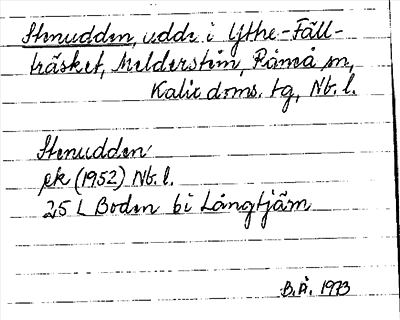 Stenudden, udde i Ythe-Fäll-
träsket, Melderstein, Råneå sn,
Kalix doms. tg, Nb. l.
Stenudden
ek (1952) Nb. l.
25 L Boden bi Långtjärn
B.Å. 1973